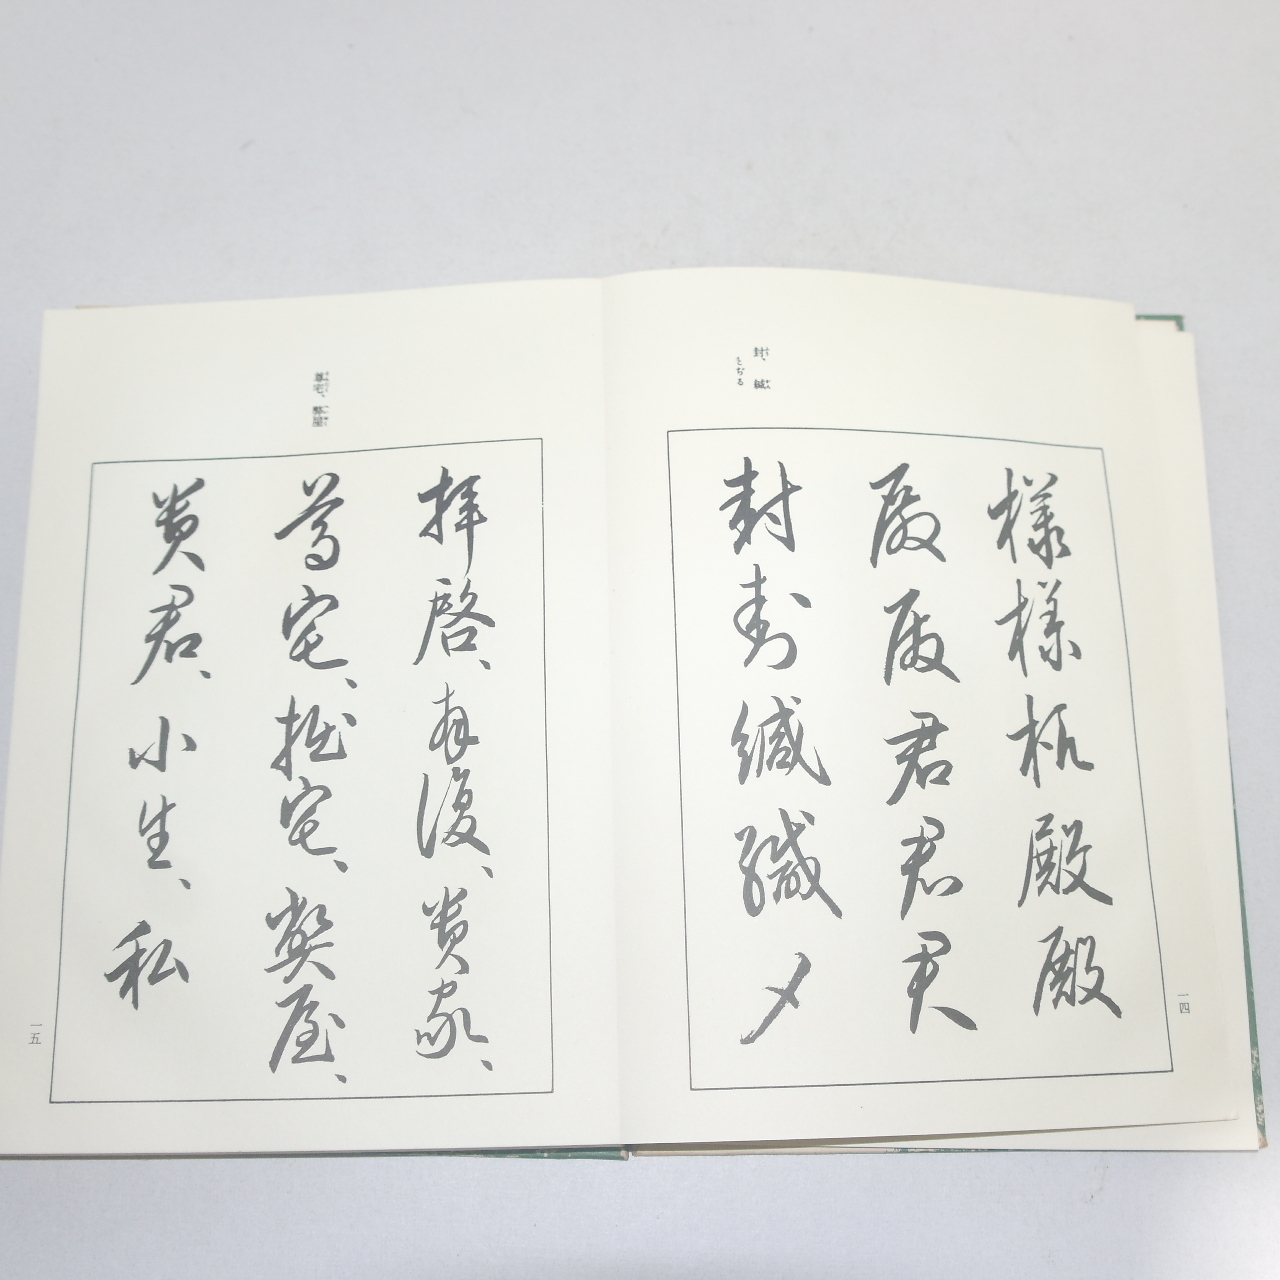 封、緘
とぢる
様様様殿殿
殿殿君君君
封封緘緘〆
一四
尊宅、弊屋
拝啓、拝復、貴家、
尊宅、拙宅、弊屋、
貴君、小生、私
一五